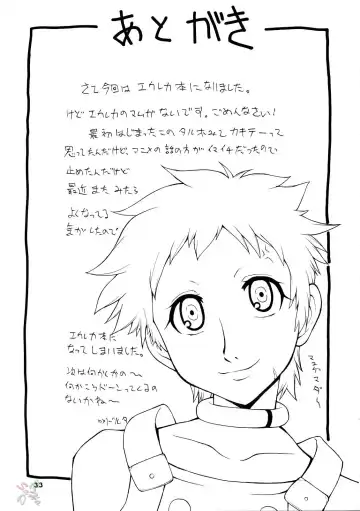 あとがき
さて今回はエウレカ本になりました。
けどエウレカのマンガがないです。ごめんなさい!
最初はじまったこのタルホみてカキテーって
思ってたんだけど、アニメの話の方がイマイチだったので
止めたんだけど
最近またみたら
よくなってる
気がしたので
エウレカ本に
なってしまいました。
次は何かくの〜
何かこうドーンってくるの
ないかね〜
33